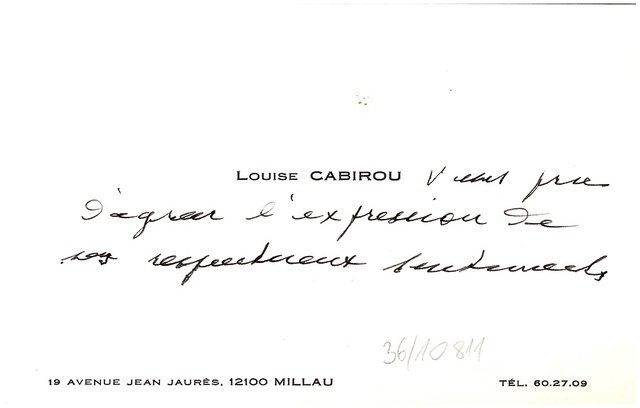 Louise CABIROU vous prie
d'agréer l'expression de
ses respectueux sentiments
36/10 811
19 AVENUE JEAN JAURÈS, 12100 MILLAU TÉL. 60.27.09